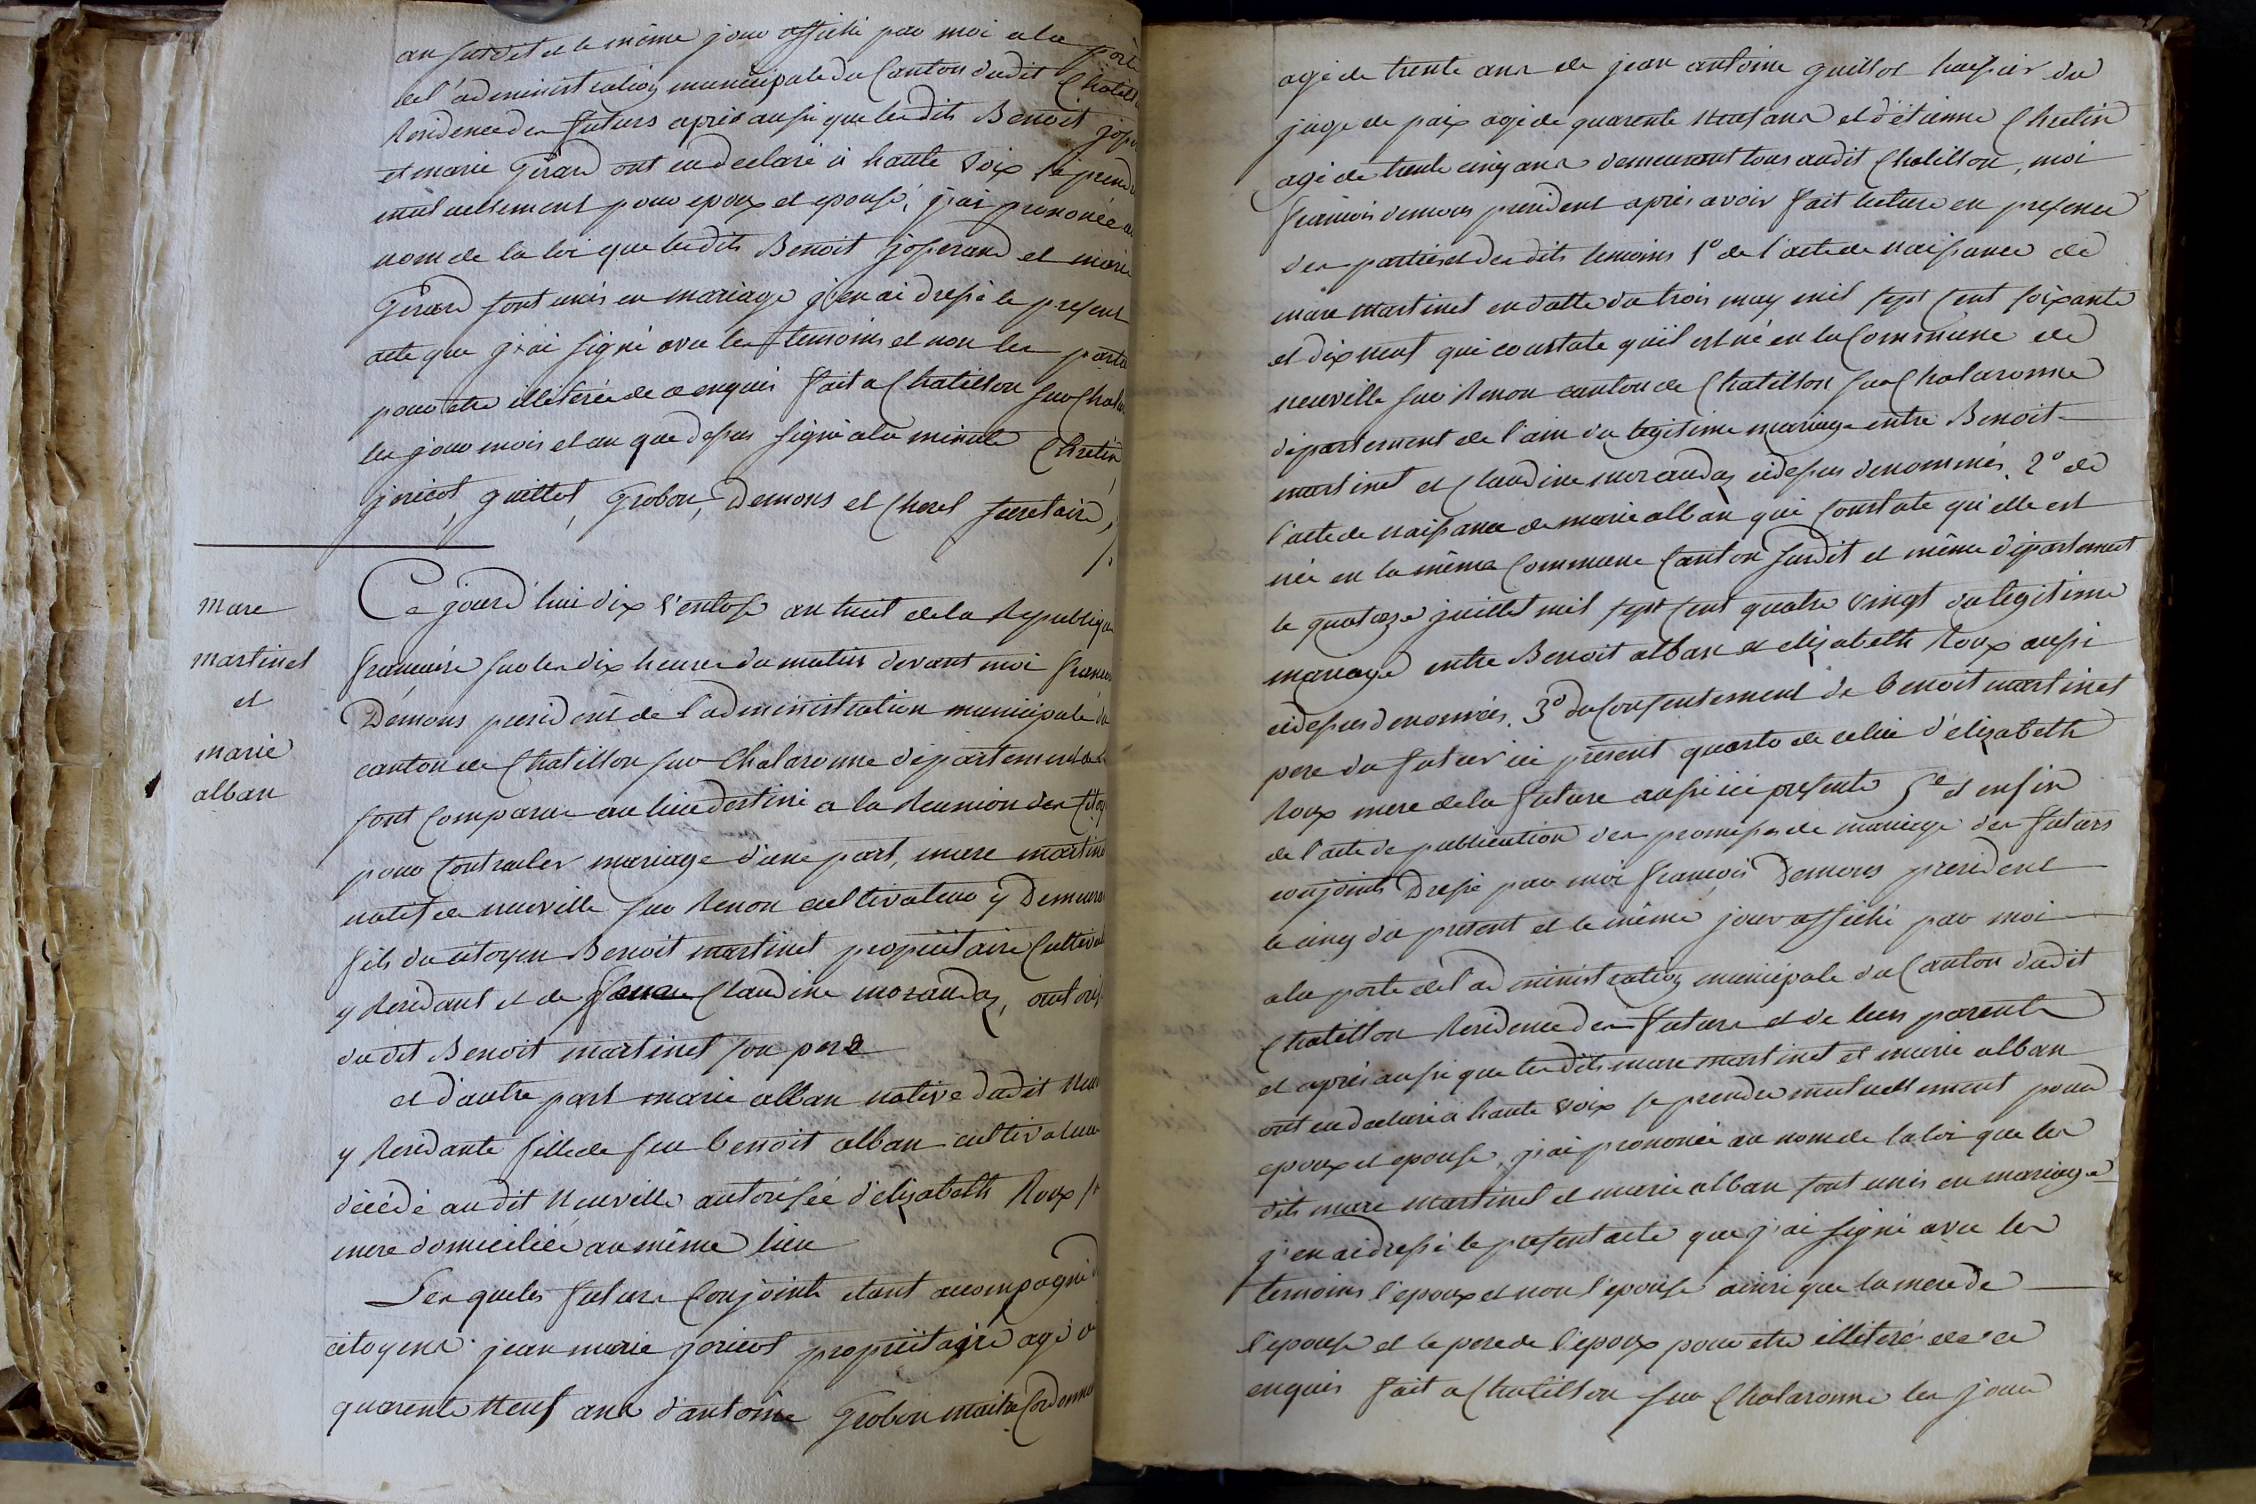 an susdit et le même jour affiché par moi a la porte
de l'administration municipale du Canton dudit Chatill
Residence des futurs apres aussi que lesdits Benoit josser
et marie Gerard ont eu declaré à haute voix se prendre
mutuellement pour epoux et epouse, j'ai prononcé au
nom de la loi que lesdits Benoit josserand et marie
Gerard sont unis en mariage j'en ai dressé le present
acte que j'ai signé avec les temoins et non les parties
pour etre illiterée de ce enquis fait a Chatillon sur Chala
les jour mois et an que dessus signé a la minute Chretin
joricot, guillot, Grobon, Demons et Chorel secretaire,
mare
martinet
et
marie
alban
Ce jourd'hui dix Ventose an huit de la Republique
francaise sur les dix heures du matin devant moi francois
Demons president de l'administration municipale du
canton de Chatillon sur Chalaronne departement de l
sont Comparus au lieu destiné a la Reunion des Citoy
pour Contracter mariage d'une part, mare martinet
natif de neuville sur Renon cultivateur y Demeura
fils du citoyen Benoit martinet propriétaire Cultivat
y Residant et de Claudine morandas, autoris
dudit Benoit martinet son pere
et d'autre part marie alban native dudit Neuv
y Residante fille de feu benoit alban cultivateur
décédé audit Neuville autorisée d'elisabeth Roux sa
mere domiciliée au même lieu
Lesquels futurs Conjoints etant accompagné d
citoyens jean marie joricot propriétaire agé de
quarente Neuf ans d'antoine Grobon maitre Cordonnier
agé de trente ans de jean antoine guillot huissier du
juge de paix agé de quarente Neuf ans et d'étienne Chretin
agé de trente cinq ans demeurant tous audit Chatillon, moi
francois demons president apres avoir fait lecture en presence
des parties et desdits temoins 1º de l'acte de naissance de
mare martinet en datte du trois may mil sept cent soixante
et dix neuf qui constate qu'il est né en la Commune de
neuville sur Renon canton de Chatillon sur Chalaronne
département de l'ain du legitime mariage entre Benoit
martinet et Claudine morandas cidessus denommés. 2º de
l'acte de naissance de marie alban qui Constate qu'elle est
née en la même Commune Canton susdit et même département
le quatorze juillet mil sept cent quatre vingt du legitime
mariage entre Benoit alban et elisabeth Roux aussi
cidessus denommés. 3º du Consentement de benoit martinet
pere du futur ici present quarto de celui d'elisabeth
Roux mere de la future aussi ici presente 5e et enfin
de l'acte de publication des promesses de mariage des futurs
conjoints Dressé par moi françois Demons president
le cinq du present et le même jour affiché par moi
a la porte de l'administration municipale du Canton dudit
Chatillon Residence des futurs et de leurs parents
et apres aussi que lesdits mare martinet et marie alban
ont eu declaré a haute voix se prendre mutuellement pour
epoux et epouse, j'ai prononcé au nom de la loi que les
dits mare martinet et marie alban sont unis en mariage
j'en ai dressé le present acte que j'ai signé avec les
temoins l'epoux et non l'epouse ainsi que la mere de
l'epouse et le pere de l'epoux pour etre illiteré de ce
enquis fait a Chatillon sur Chalaronne les jour